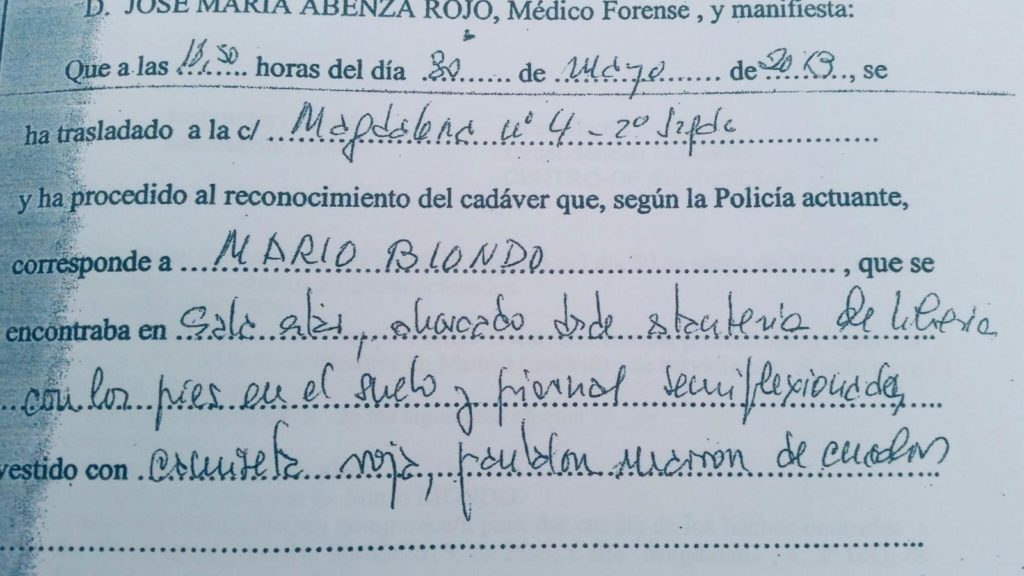 D. JOSÉ MARÍA ABENZA ROJO, Médico Forense , y manifiesta:
Que a las horas del día 30 de Mayo de 2013, se
ha trasladado a la c/ Magdalena nº 4 - 2º Izqda
y ha procedido al reconocimiento del cadáver que, según la Policía actuante,
corresponde a MARIO BIONDO , que se
encontraba en Sala estar, ahorcado desde estantería de librería
con los pies en el suelo y piernas semiflexionadas
vestido con camiseta roja, pantalón marrón de cuadros